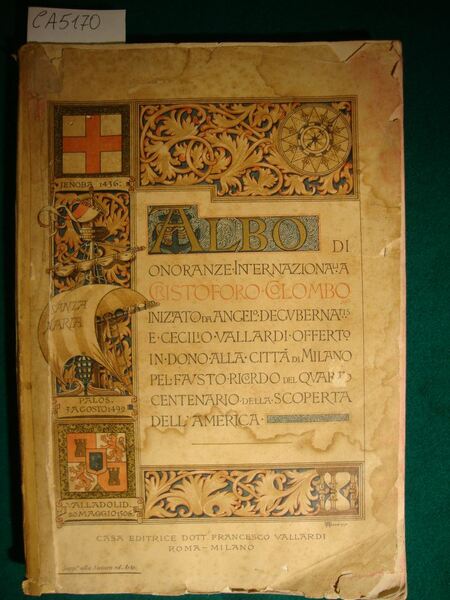 CA5170
JENOBA 1436:
ALBO DI
ONORANZE·INTERNAZIONALI A
CRISTOFORO·COLOMBO
INIZATO DA ANGELO DE GUBERNATIS
E·CECILIO·VALLARDI·OFFERTO
IN·DONO·ALLA·CITTÀ DI MILANO
PEL·FAVSTO·RICORDO DEL QVARTO
CENTENARIO·DELLA·SCOPERTA
DELL'AMERICA·
SANTA
MARIA
PALOS.
3 AGOSTO 1492
VALLADOLID.
20 MAGGIO 1506
CASA EDITRICE DOTT. FRANCESCO VALLARDI
ROMA—MILANO